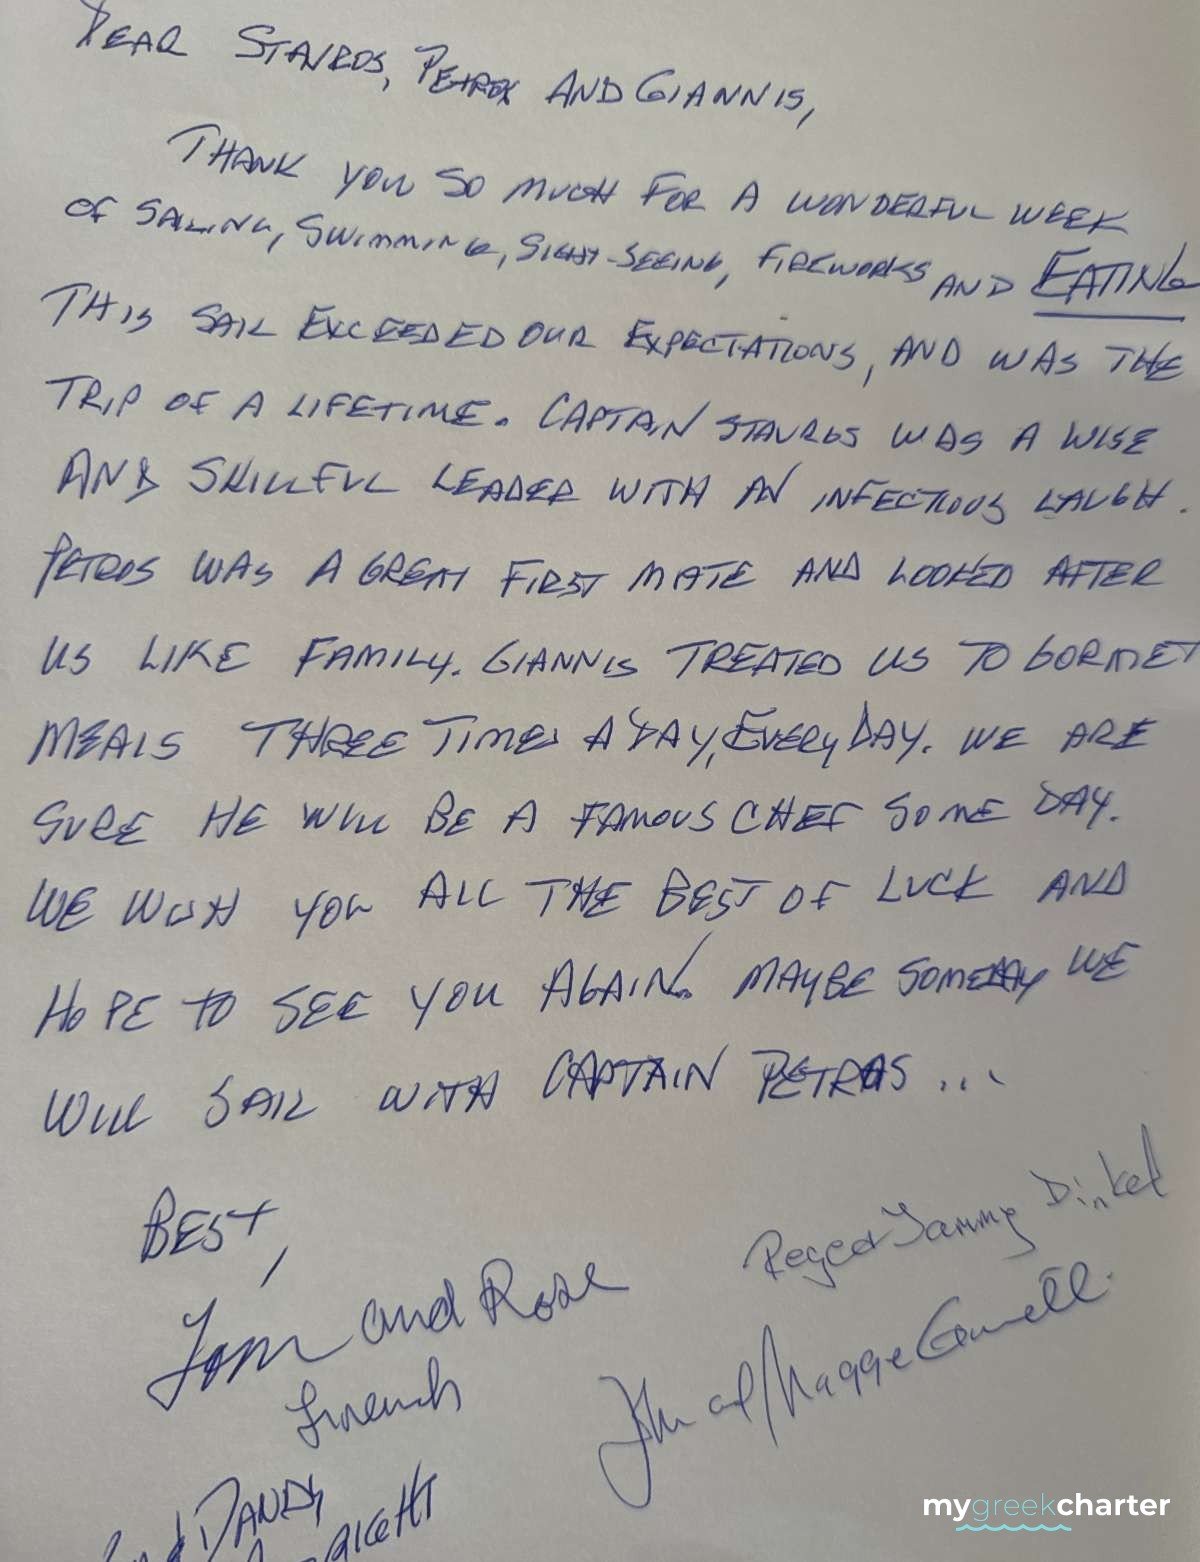 DEAR STAVROS, PETROS AND GIANNIS,
THANK YOU SO MUCH FOR A WONDERFUL WEEK
OF SAILING, SWIMMING, SIGHT-SEEING, FIREWORKS AND EATING
THIS SAIL EXCEEDED OUR EXPECTATIONS, AND WAS THE
TRIP OF A LIFETIME. CAPTAIN STAVROS WAS A WISE
AND SKILLFUL LEADER WITH AN INFECTIOUS LAUGH.
PETROS WAS A GREAT FIRST MATE AND LOOKED AFTER
US LIKE FAMILY. GIANNIS TREATED US TO GORMET
MEALS THREE TIMES A DAY, EVERY DAY. WE ARE
SURE HE WILL BE A FAMOUS CHEF SOME DAY.
WE WISH YOU ALL THE BEST OF LUCK AND
HOPE TO SEE YOU AGAIN. MAYBE SOMEDAY WE
WILL SAIL WITH CAPTAIN PETRAS...
BEST,
Tom and Rose
Roger Tammy Dinkel
John and Maggie
DANDY
mygreekcharter